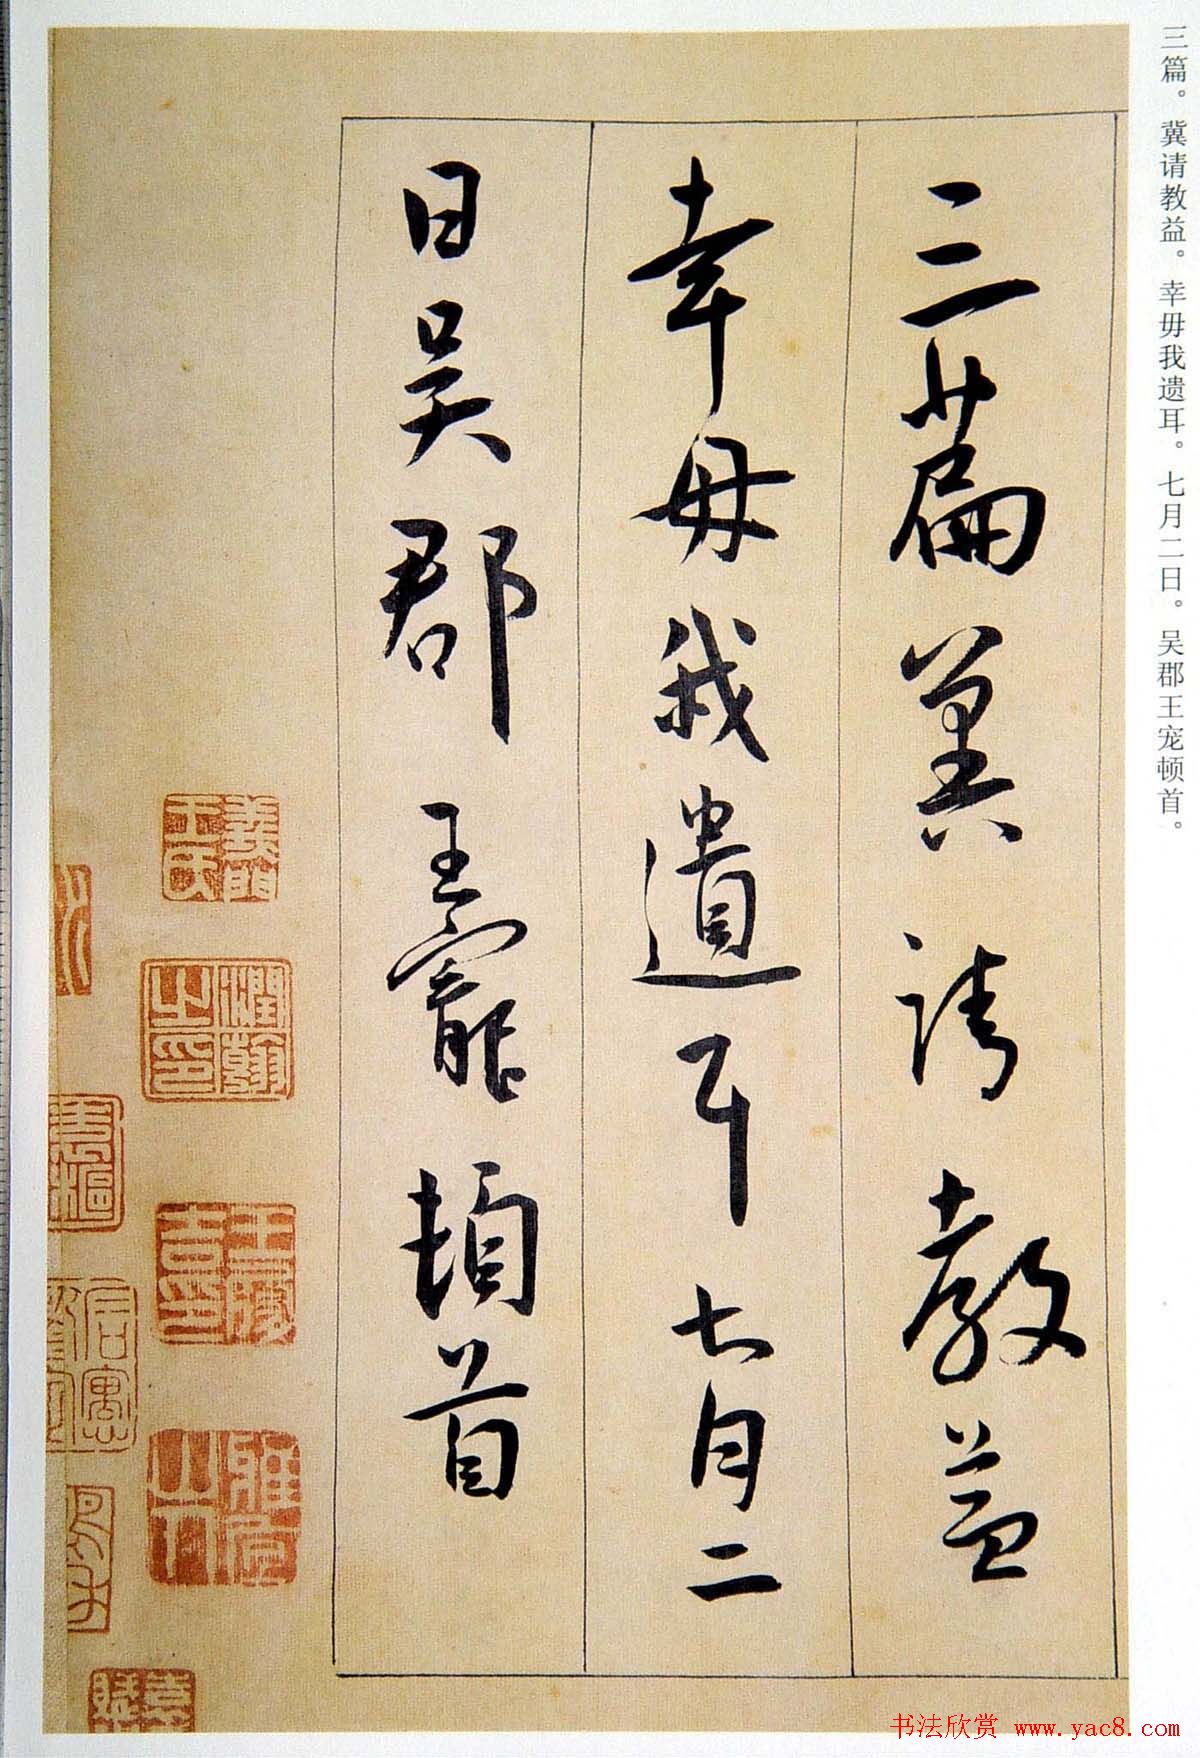 三篇。冀请教益。幸毋我遗耳。七月二日。吴郡王宠顿首。
三篇冀請教益
幸毋我遺耳七月二
日吴郡王寵頓首
王氏
潤翰之印
書法欣赏 www.yac8.com